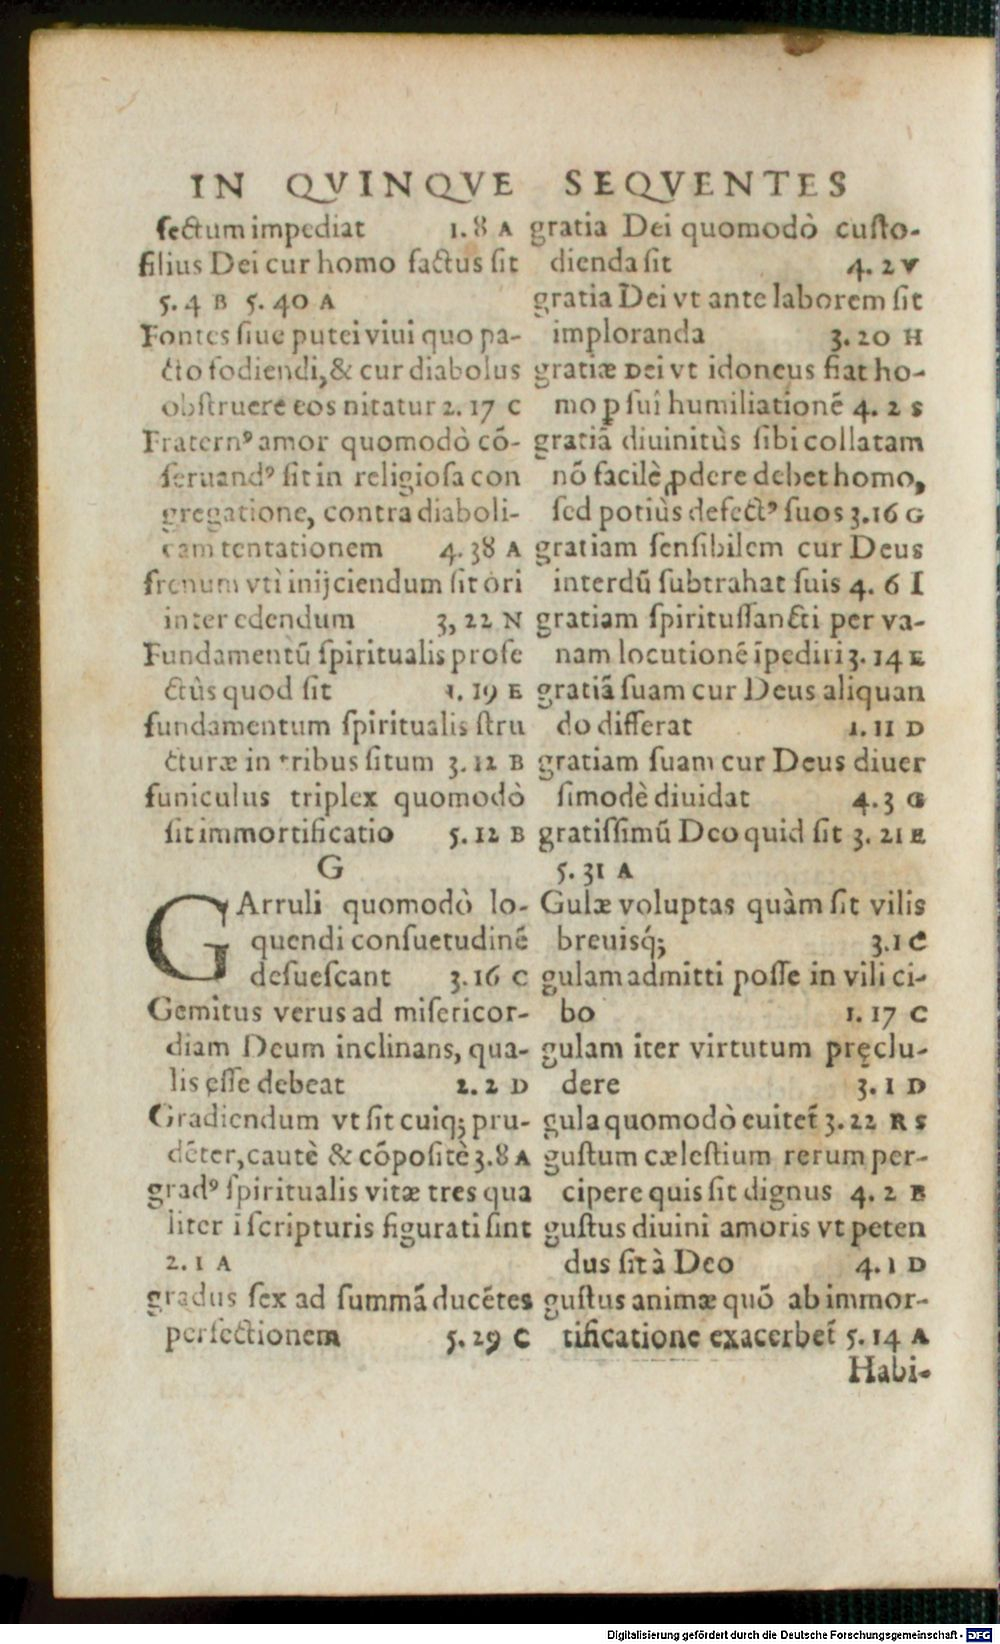 IN QVINQVE SEQVENTES
fectum impediat 1. 8 A
filius Dei cur homo factus sit
5. 4 B 5. 40 A
Fontes siue putei viui quo pa-
cto fodiendi, & cur diabolus
obstruere eos nitatur 2. 17 C
Fraternꝰ amor quomodò cō-
seruandꝰ sit in religiosa con
gregatione, contra diaboli-
cam tentationem 4. 38 A
frenum vti inijciendum sit ori
inter edendum 3, 22 N
Fundamentū spiritualis profe
ctùs quod sit 1. 19 E
fundamentum spiritualis stru
cturæ in tribus situm 3. 12 B
funiculus triplex quomodò
sit immortificatio 5. 12 B
G
GArruli quomodò lo-
quendi consuetudinē
desuescant 3. 16 C
Gemitus verus ad misericor-
diam Deum inclinans, qua-
lis esse debeat 2. 2 D
Gradiendum vt sit cuiq; pru-
dēter, cautè & cōpositè 3. 8 A
gradꝰ spiritualis vitæ tres qua
liter ī scripturis figurati sint
2. 1 A
gradus sex ad summā ducētes
perfectionem 5. 29 C
gratia Dei quomodò custo-
dienda sit 4. 2 V
gratia Dei vt ante laborem sit
imploranda 3. 20 H
gratiæ Dei vt idoneus fiat ho-
mo ꝑ sui humiliationē 4. 2 S
gratiā diuinitùs sibi collatam
nō facilè ꝓdere debet homo,
sed potiùs defectꝰ suos 3. 16 G
gratiam sensibilem cur Deus
interdū subtrahat suis 4. 6 I
gratiam spiritussancti per va-
nam locutionē īpediri 3. 14 E
gratiā suam cur Deus aliquan
do differat 1. 11 D
gratiam suam cur Deus diuer
simodè diuidat 4. 3 G
gratissimū Deo quid sit 3. 21 E
5. 31 A
Gulæ voluptas quàm sit vilis
breuisq́; 3. 1 C
gulam admitti posse in vili ci-
bo 1. 17 C
gulam iter virtutum pręclu-
dere 3. 1 D
gula quomodò euitet̃ 3. 22 R S
gustum cælestium rerum per-
cipere quis sit dignus 4. 2 B
gustus diuini amoris vt peten
dus sit à Deo 4. 1 D
gustus animæ quō ab immor-
tificatione exacerbet̃ 5. 14 A
Habi-
Digitalisierung gefördert durch die Deutsche Forschungsgemeinschaft - DFG